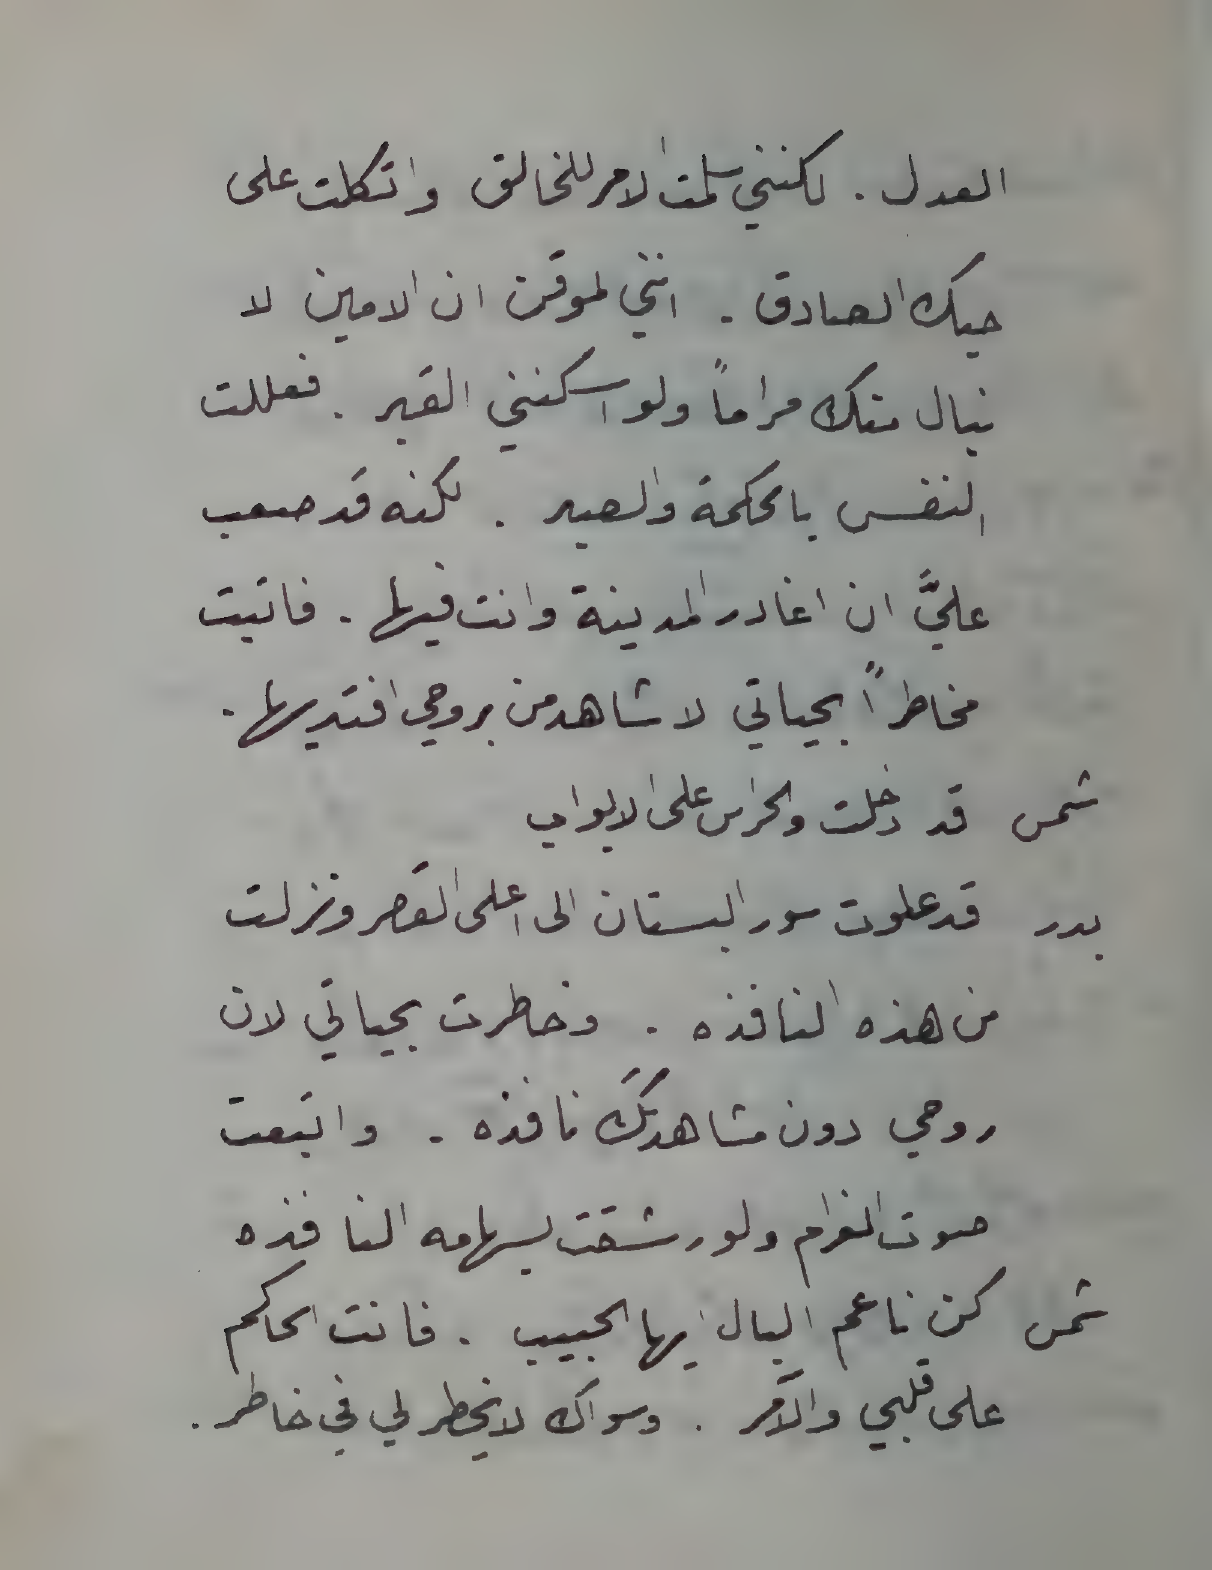 العدل . لكنني سلمت الامر للخالق واتكلت على
حبك الصادق . انني لموقن ان الامين لا
ينال منك مراماً ولو اسكنني القبر . فعللت
النفس بالحكمة والصبر . لكنه قد صعب
عليَّ ان اغادر المدينة وانت فيها . فاتيت
مخاطراً بحياتي لاشاهد من بروحي افتديها .
شمس قد دخلت والحراس على الابواب
بدر قد علوت سور البستان الى اعلى القصر ونزلت
من هذه النافذه . وخاطرت بحياتي لان
روحي دون مشاهدتك نافذه . واتبعت
صوت الغرام ولو رشقت بسهامه النافذه
شمس كن ناعم البال ايها الحبيب . فانت الحاكم
على قلبي والآمر . وسواك لا يخطر لي في خاطر .